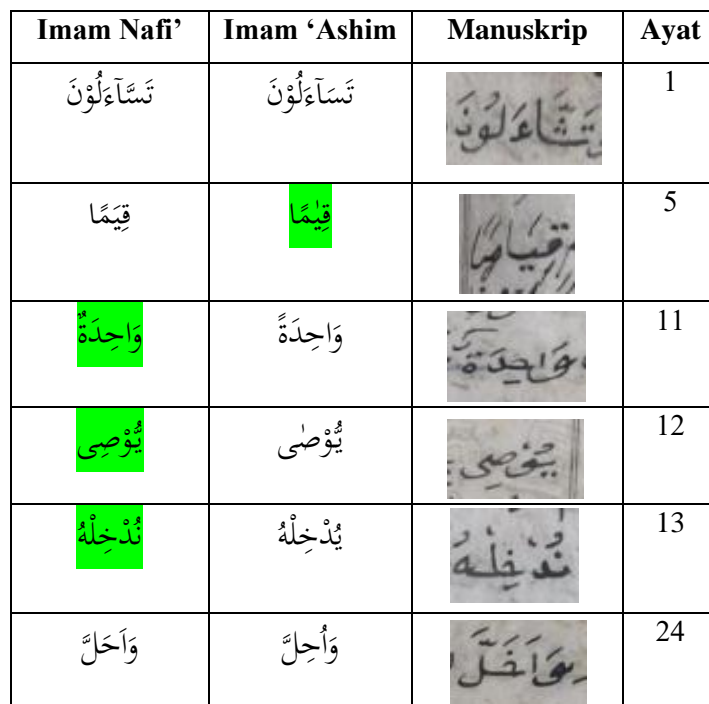 Imam Nafi’ Imam ‘Ashim Manuskrip Ayat
تَسَّآءَلُوْنَ تَسَآءَلُوْنَ تَشَّاءَلُونَ 1
قِيَمًا قِيٰمًا قِيَامًا 5
وَاحِدَةٌ وَاحِدَةً وَاحِدَةٌ 11
يُّوْصِى يُّوْصٰى يُوصِي 12
نُدْخِلْهُ يُدْخِلْهُ نُدْخِلْهُ 13
وَاَحَلَّ وَاُحِلَّ وَاَحَلَّ 24